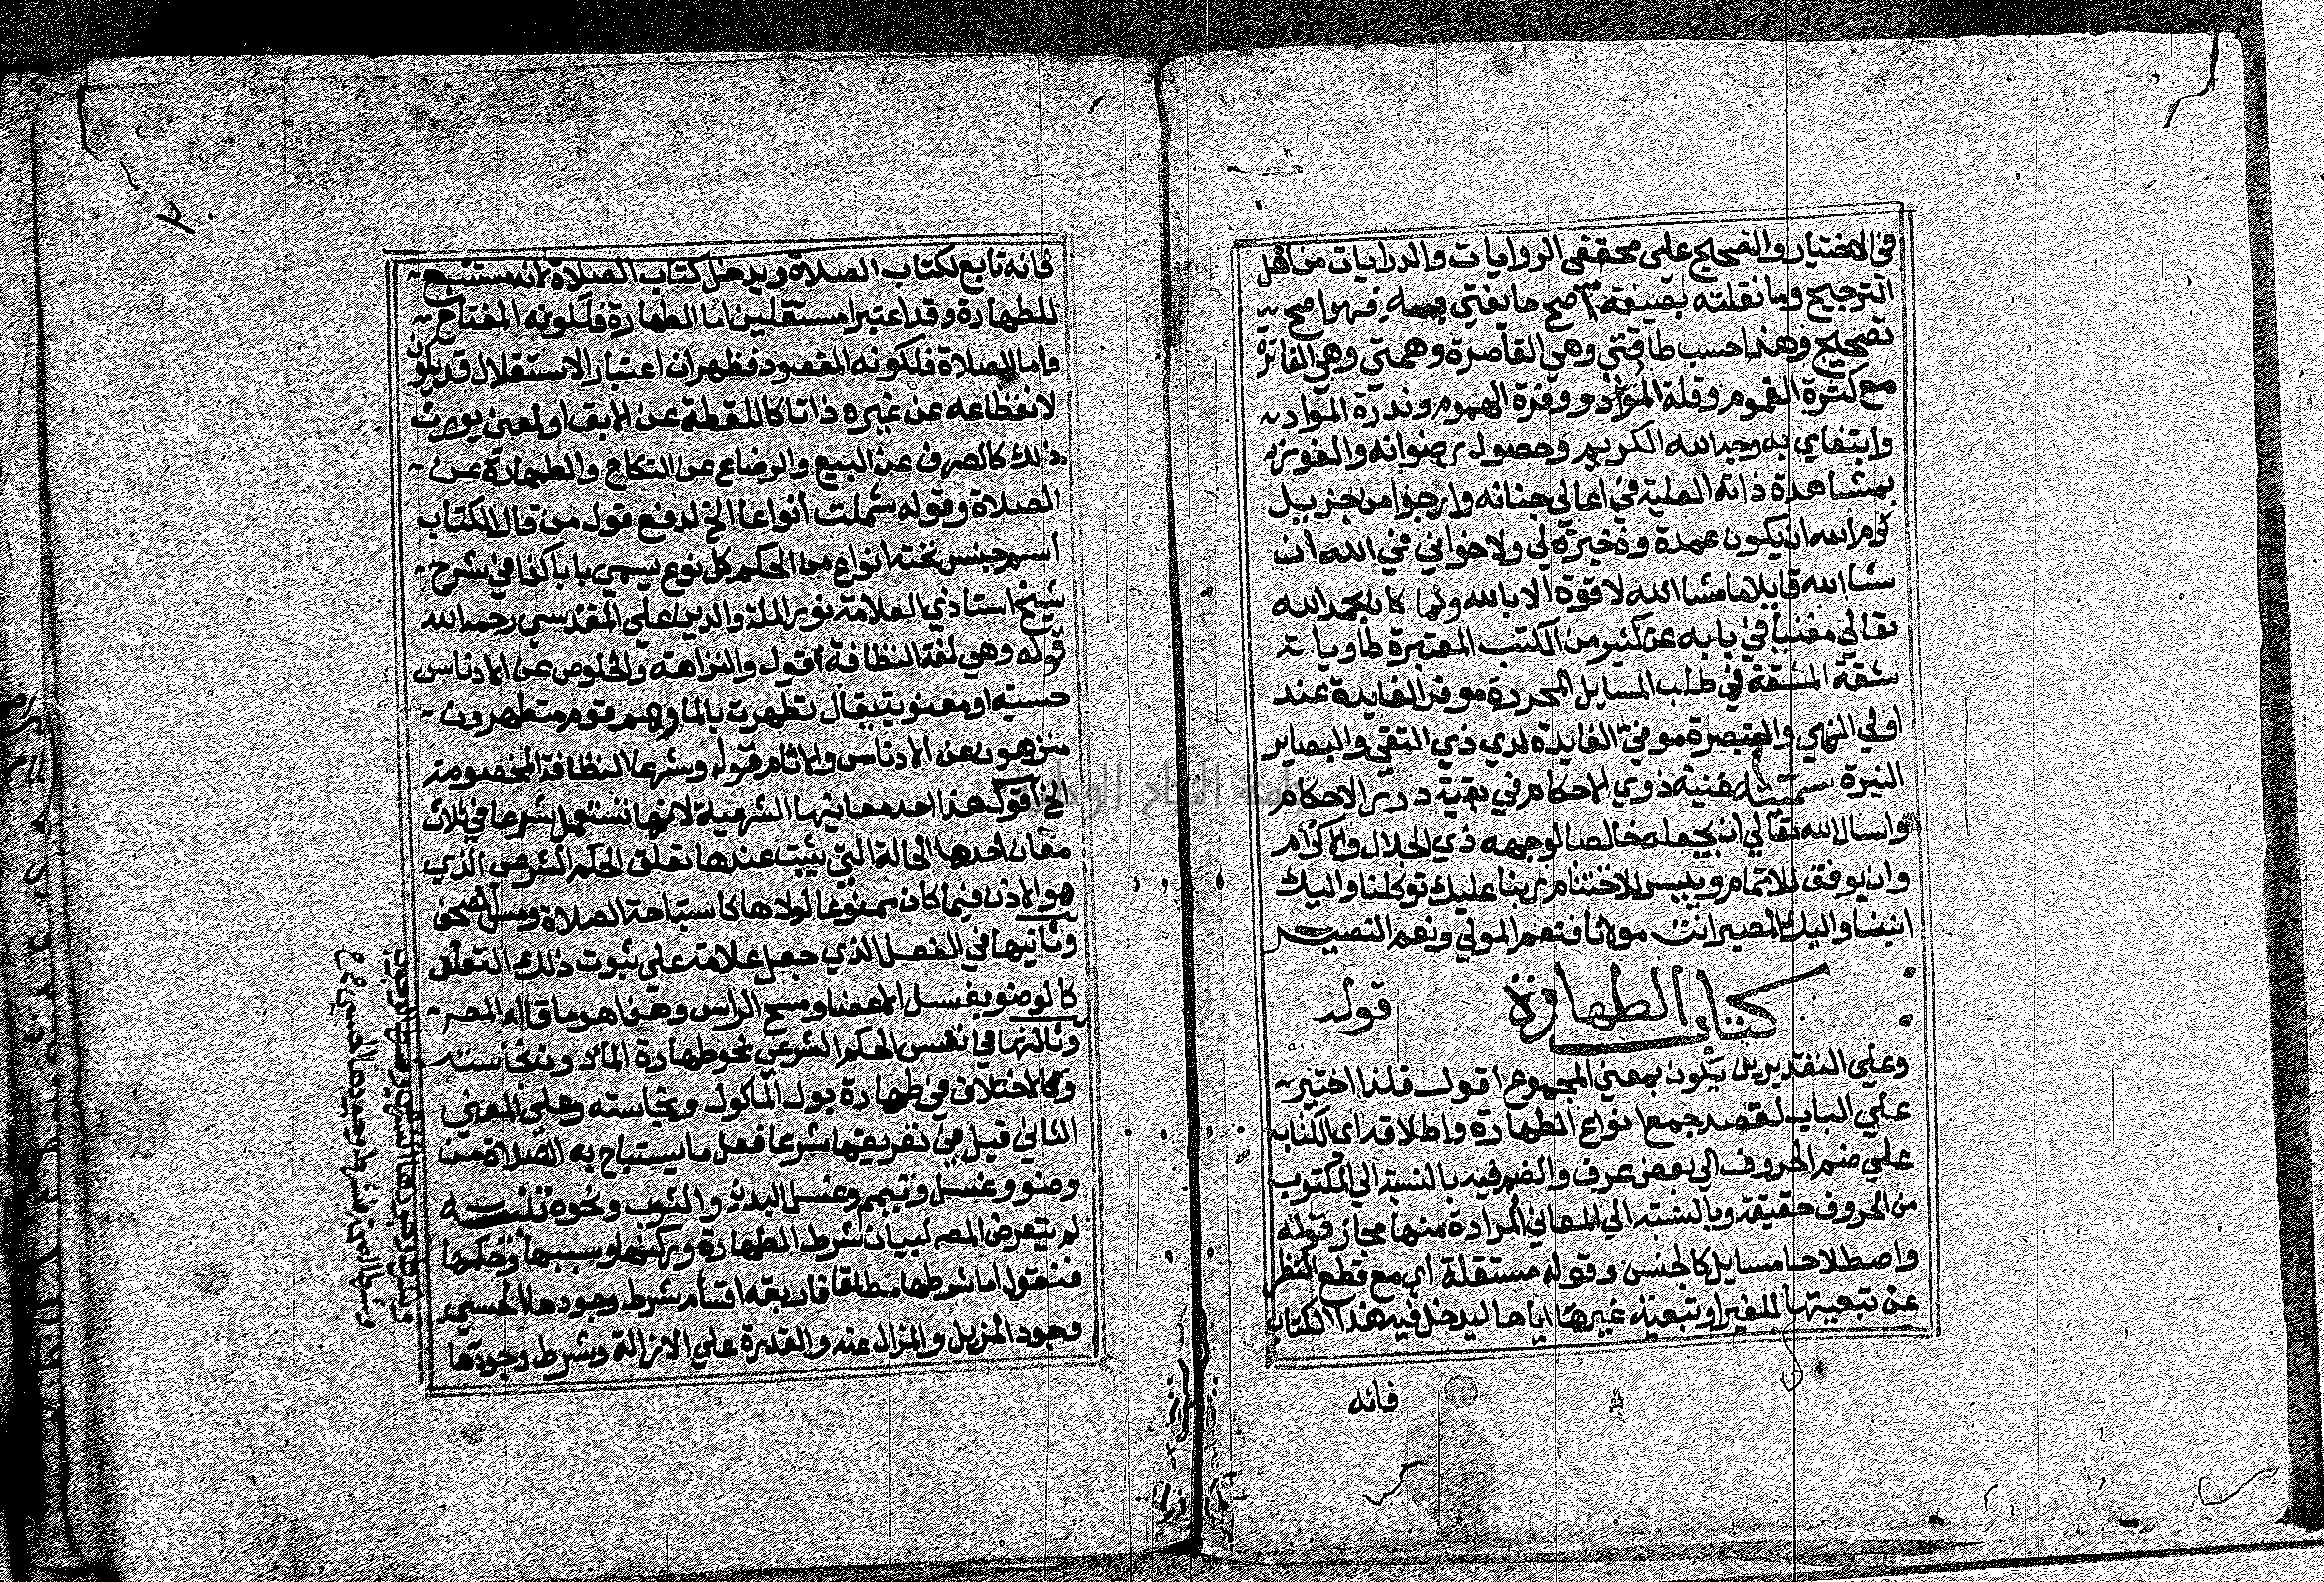 في الاختيار والتصحيح على محققي الروايات والدرايات من اهل
الترجيح وما نقلته بصيغة اصح ما يفتي به فهو اصح
تصحيح وهذا حسب طاقتي وهي القاصرة وهمتي وهي الفاترة
مع كثرة الغموم وقلة المواد ووفرة الهموم وندرة المواد
وابتغاي به وجه الله الكريم وحصول رضوانه والفوز
بمشاهدة ذاته العلية في اعالي جنانه وارجوا من جزيل
كرم الله ان يكون عمدة وذخيرة لي ولاخواني في الله ان
شا الله قايلا ما شا الله لا قوة الا بالله ولما كان بحمد الله
تعالي مغنيا في بابه عن كثير من الكتب المعتبرة طاويا
شقة المشقة في طلب المسايل المحررة موفر الفايدة عند
اولي النهي والتبصرة موفي الفايدة لدي ذي التقي والبصاير
النيرة سميته غنية ذوي الاحكام في بغية درر الاحكام
واسال الله تعالي ان يجعله خالصا لوجهه ذي الجلال والاكرام
وان يوفق للاتمام وييسر للاختتام ربنا عليك توكلنا واليك
انبنا واليك المصير انت مولانا فنعم المولي ونعم النصير
كتاب الطهارة قوله
وعلي التقديرين يكون بمعني المجموع اقول فلذا اختير
علي الباب لقصد جمع انواع الطهارة واطلاقه اي الكتاب
علي ضم الحروف الي بعض عرف والضم فيه بالنسبة الي المكتوب
من الحروف حقيقة وبالنسبة الي المعاني المرادة منها مجاز قوله
واصطلاحا مسايل كالجنس وقوله مستقلة اي مع قطع النظر
عن تبعيتها للغير او تبعية غيرها اياها ليدخل فيه هذا الكتاب
فانه
٢
فانه تابع لكتاب الصلاة ويدخل كتاب الصلاة لانه مستتبع
للطهارة وقد اعتبرا مستقلين اما الطهارة فلكونه المفتاح
واما الصلاة فلكونه المقصود فظهر ان اعتبار الاستقلال قد يكون
لانقطاعه عن غيره ذاتا كاللقطة عن الابق او لمعني يورث
ذلك كالصرف عن البيع والرضاع عن النكاح والطهارة عن
الصلاة وقوله شملت انواعا الخ لدفع قول من قال الكتاب
اسم جنس تحته انواع من الحكم كل نوع يسمي بابا كذا في شرح
شيخ استاذي العلامة نور الملة والدين علي المقدسي رحمه الله
قوله وهي لغة النظافة اقول والنزاهة والخلوص عن الادناس
حسية او معنوية يقال تطهرت بالما وهم قوم متطهرون
منزهون عن الادناس والاثام قوله وشرعا النظافة المخصوصة
الخ اقول هذا احد معانيها الشرعية لانها تستعمل شرعا في ثلاث
معان احدها الحالة التي يثبت عندها تعلق الحكم الشرعي الذي
هو الاذن فيما كان ممنوعا لولاها كاستباحة الصلاة ومس المصحف
وثانيها في الفصل الذي جعل علامة علي ثبوت ذلك التعلق
كالوضو بغسل الاعضا ومسح الراس وهذا هو ما قاله المص
وثالثها في نفس الحكم الشرعي نحو طهارة الماء ونجاسته
وكالاختلاف في طهارة بول الماكول ونجاسته وعلي المعني
الثاني قيل في تعريفها شرعا فعل ما يستباح به الصلاة من
وضوو وغسل وتيمم وغسل البدن والثوب ونحوه تنبيه
لم يتعرض المص لبيان شرط الطهارة وركنها وسببها وحكمها
فنقول اما شرطها مطلقا فاربعة اقسام شرط وجودها الحسي
وجود المزيل والمزال عنه والقدرة علي الازالة وشرط وجودها